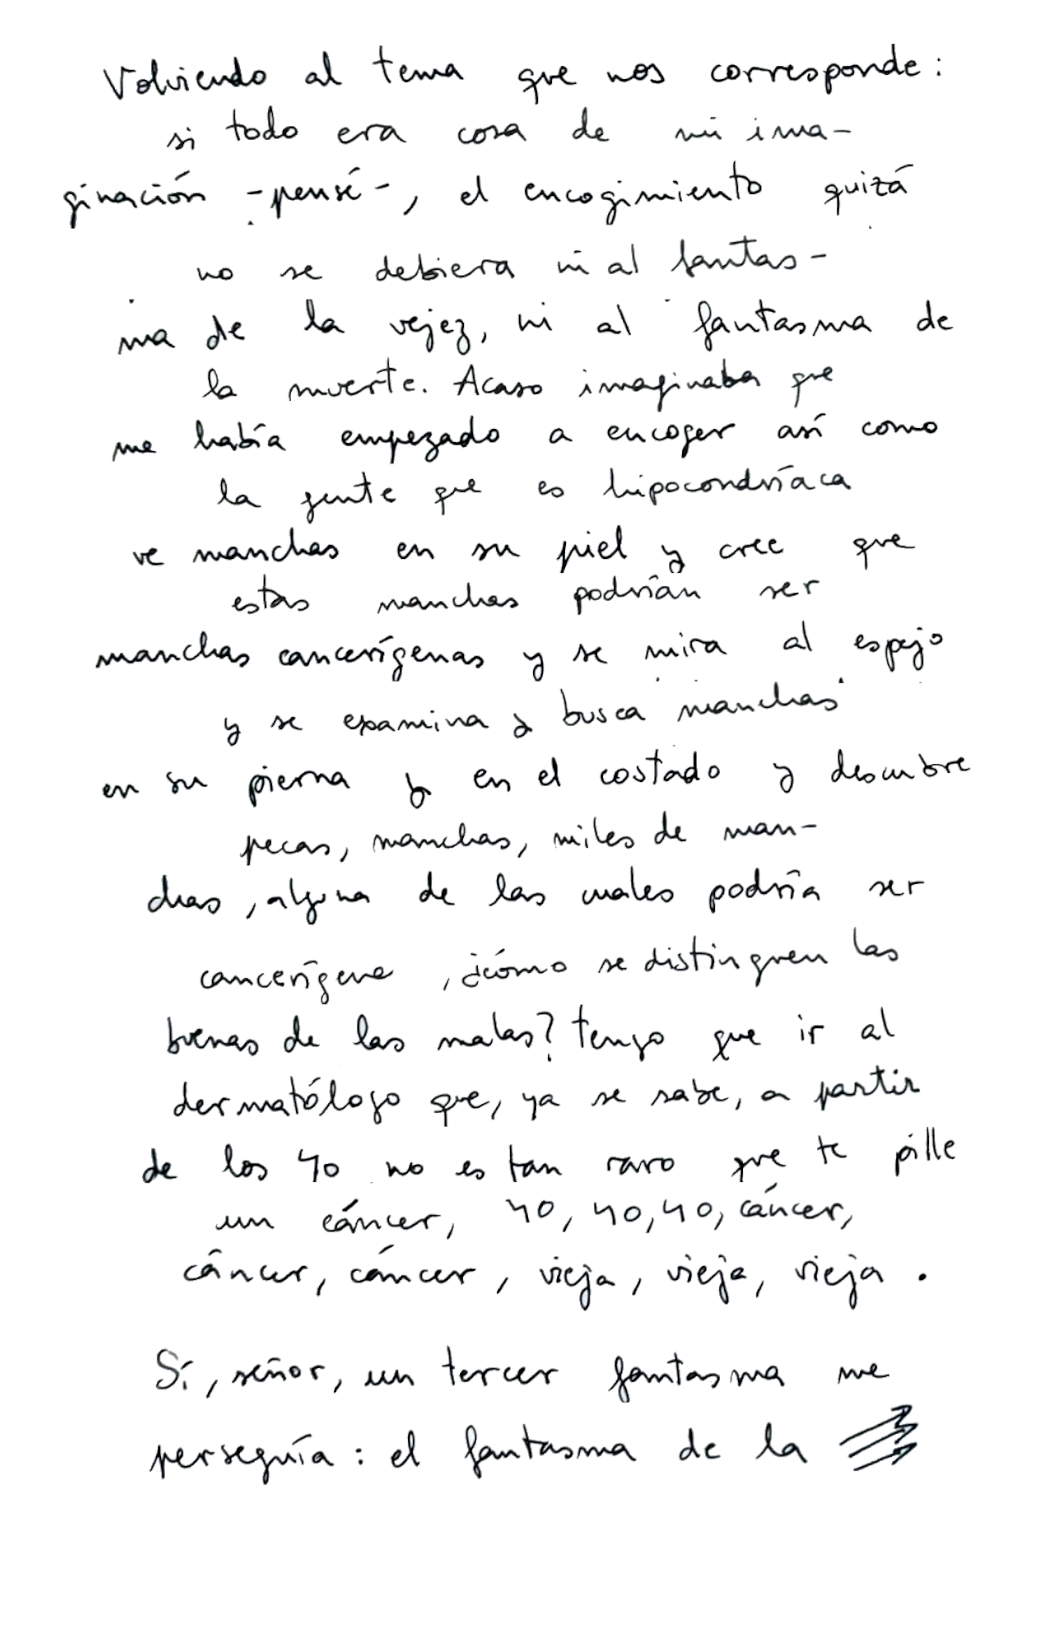 Volviendo al tema que nos corresponde:
si todo era cosa de mi ima-
ginación -pensé-, el encogimiento quizá
no se debiera ni al fantas-
ma de la vejez, ni al fantasma de
la muerte. Acaso imaginaba que
me había empezado a encoger así como
la gente que es hipocondríaca
ve manchas en su piel y cree que
estas manchas podrían ser
manchas cancerígenas y se mira al espejo
y se examina y busca manchas
en su pierna y en el costado y descubre
pecas, manchas, miles de man-
chas, alguna de las cuales podría ser
cancerígena, ¿cómo se distinguen las
buenas de las malas? tengo que ir al
dermatólogo que, ya se sabe, a partir
de los 40 no es tan raro que te pille
un cáncer, 40, 40, 40, cáncer,
cáncer, cáncer, vieja, vieja, vieja.
Sí, señor, un tercer fantasma me
perseguía: el fantasma de la